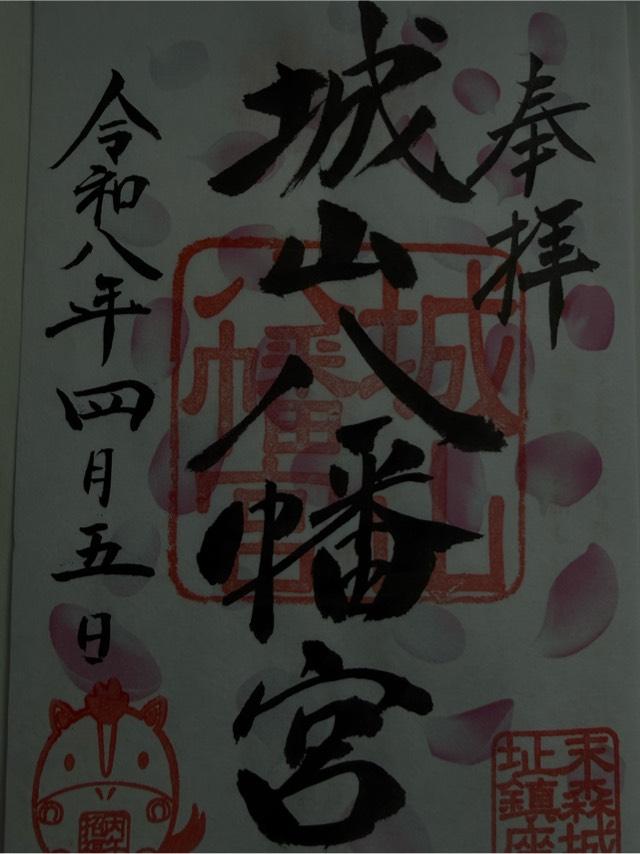 奉拝
城山八幡宮
城山
八幡宮
令和八年四月五日
末森城
址鎮座